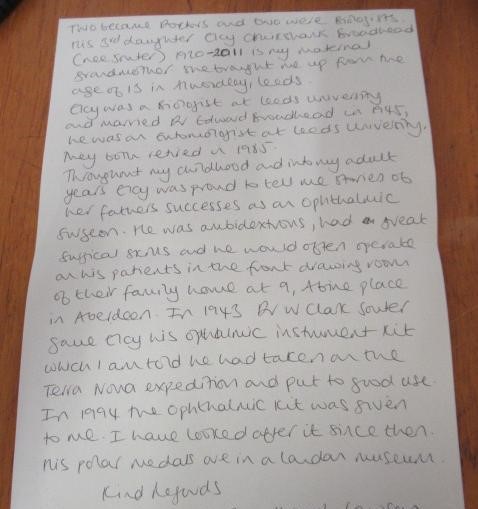 Two became Doctors and two were Biologists.
His 3rd daughter Elcy Cruikshank Broadhead
(nee Souter) 1920-2011 is my maternal
grandmother she brought me up from the
age of 13 in Alwoodley, Leeds.
Elcy was a Biologist at Leeds University
and married Dr Edward Broadhead in 1945,
he was an Entomologist at Leeds University.
They both retired in 1985.
Throughout my childhood and into my adult
years Elcy was proud to tell me stories of
her fathers successes as an Ophthalmic
Surgeon. He was ambidextrous, had great
surgical skills and he would often operate
on his patients in the front drawing room
of their family home at 9, Albyn place
in Aberdeen. In 1943 Dr W Clark Souter
gave Elcy his opthalmic instrument kit
which I am told he had taken on the
Terra Nova expedition and put to good use.
In 1994 the Ophthalmic kit was given
to me. I have looked after it since then.
His polar medals are in a London museum.
Kind Regards